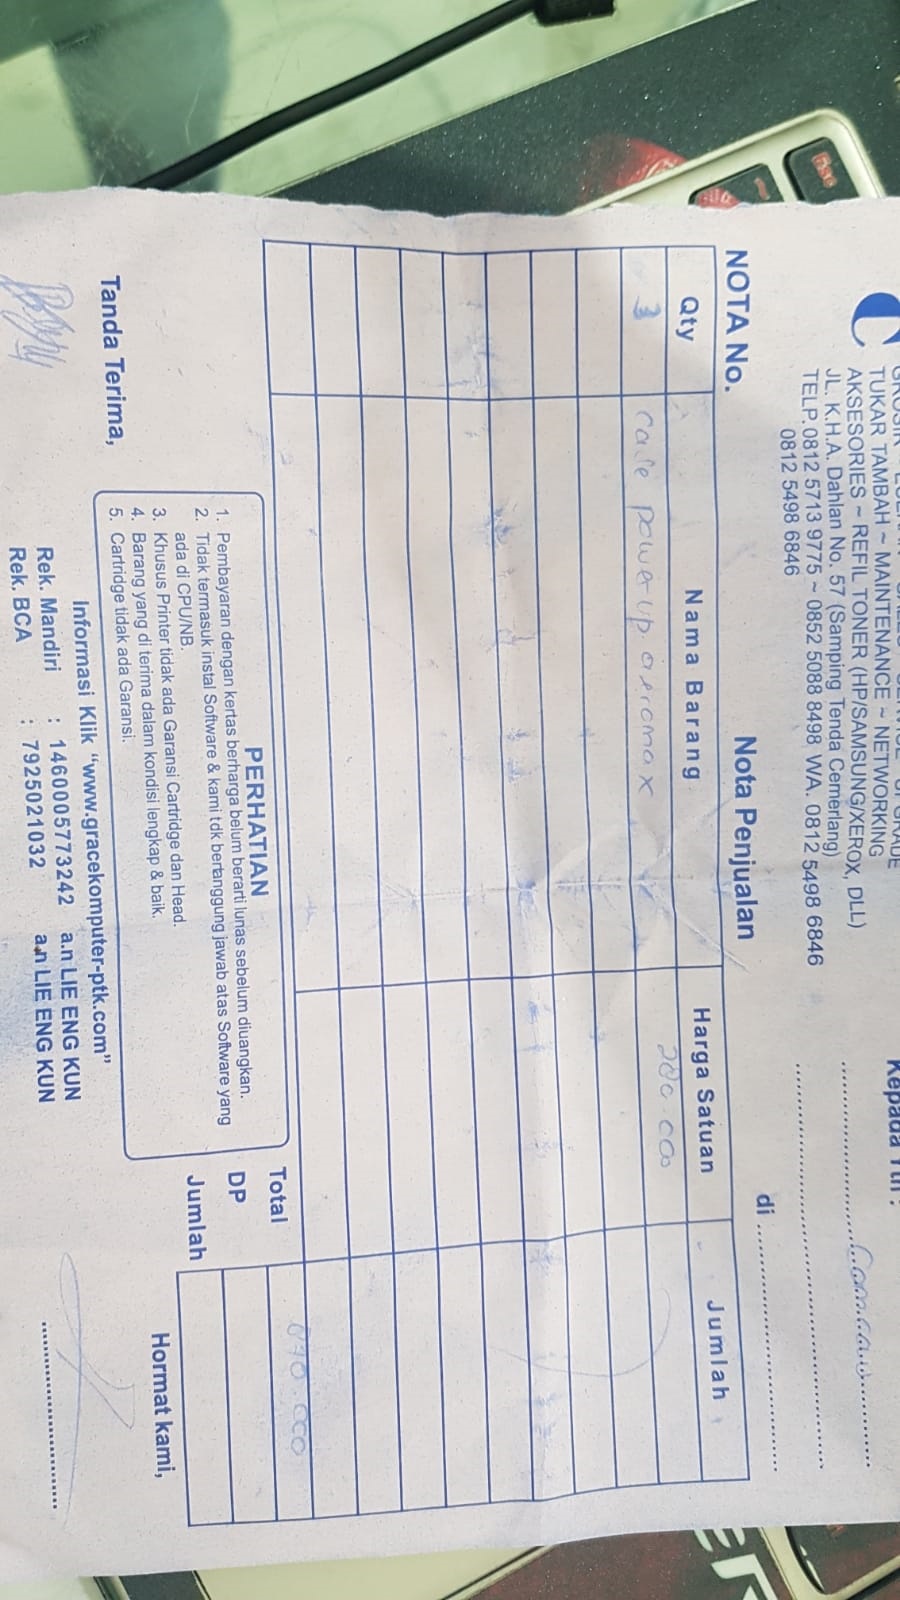 C
TUKAR TAMBAH ~ MAINTENANCE ~ NETWORKING
AKSESORIES ~ REFIL TONER (HP/SAMSUNG/XEROX, DLL)
JL. K.H.A. Dahlan No. 57 (Samping Tenda Cemerlang)
TELP. 0812 5713 9775 ~ 0852 5088 8498 WA. 0812 5498 6846
0812 5498 6846
Kepada Yth :
di
NOTA No.
Nota Penjualan
Qty Nama Barang Harga Satuan Jumlah
3 case power up aeromax 280.000
Total 840.000
DP
Jumlah
PERHATIAN
1. Pembayaran dengan kertas berharga belum berarti lunas sebelum diuangkan.
2. Tidak termasuk instal Software & kami tdk bertanggung jawab atas Software yang
ada di CPU/NB.
3. Khusus Printer tidak ada Garansi Cartridge dan Head.
4. Barang yang di terima dalam kondisi lengkap & baik.
5. Cartridge tidak ada Garansi.
Tanda Terima,
Hormat kami,
Informasi Klik "www.gracekomputer-ptk.com"
Rek. Mandiri : 1460005773242 a.n LIE ENG KUN
Rek. BCA : 7925021032 a.n LIE ENG KUN